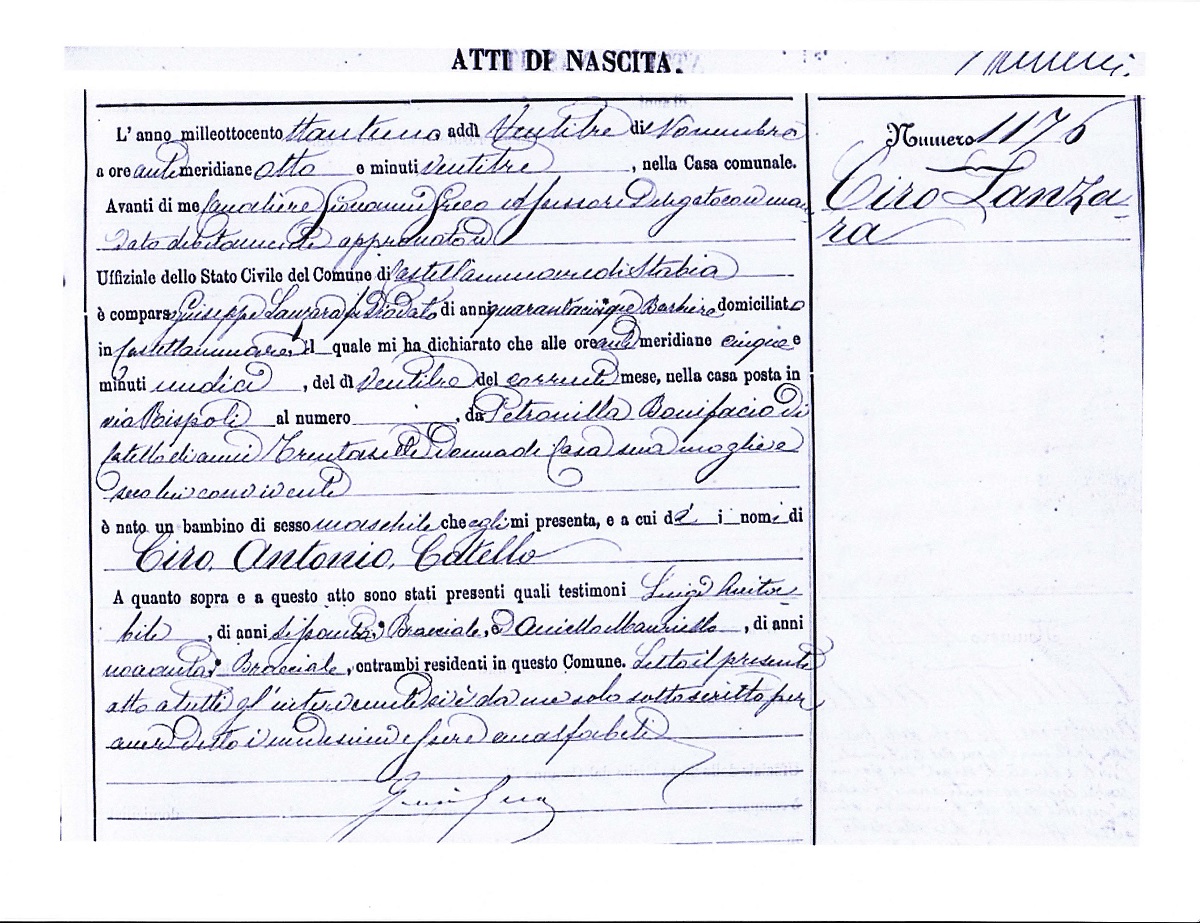 ATTI DI NASCITA.
Numero 1176
Ciro Lanza-
ra
L'anno milleottocento ottantuno addì Ventitre di Novembre
a ore antimeridiane otto e minuti ventitre, nella Casa comunale.
Avanti di me Cavaliere Giovanni Greco Assessore Delegato con man-
dato debitamente approvato
Uffiziale dello Stato Civile del Comune di Castellammare di Stabia
è comparso Giuseppe Lanzara fu Diodato di anni quarantacinque Barbiere domiciliato
in Castellammare, il quale mi ha dichiarato che alle ore antimeridiane cinque e
minuti undici, del dì Ventitre del corrente mese, nella casa posta in
via Rispoli al numero , da Petronilla Bonifacio di
Catello di anni Trentasette Donna di Casa sua moglie e
seco lui convivente
è nato un bambino di sesso maschile che egli mi presenta, e a cui dà i nomi di
Ciro, Antonio, Catello
A quanto sopra e a questo atto sono stati presenti quali testimoni Luigi
bile, di anni Bracciale, e Aniello Mauriello, di anni
Bracciale, entrambi residenti in questo Comune. Letto il presente
atto a tutti gl'intervenuti si è da me solo sottoscritto per
aver detto i medesimi essere analfabeti